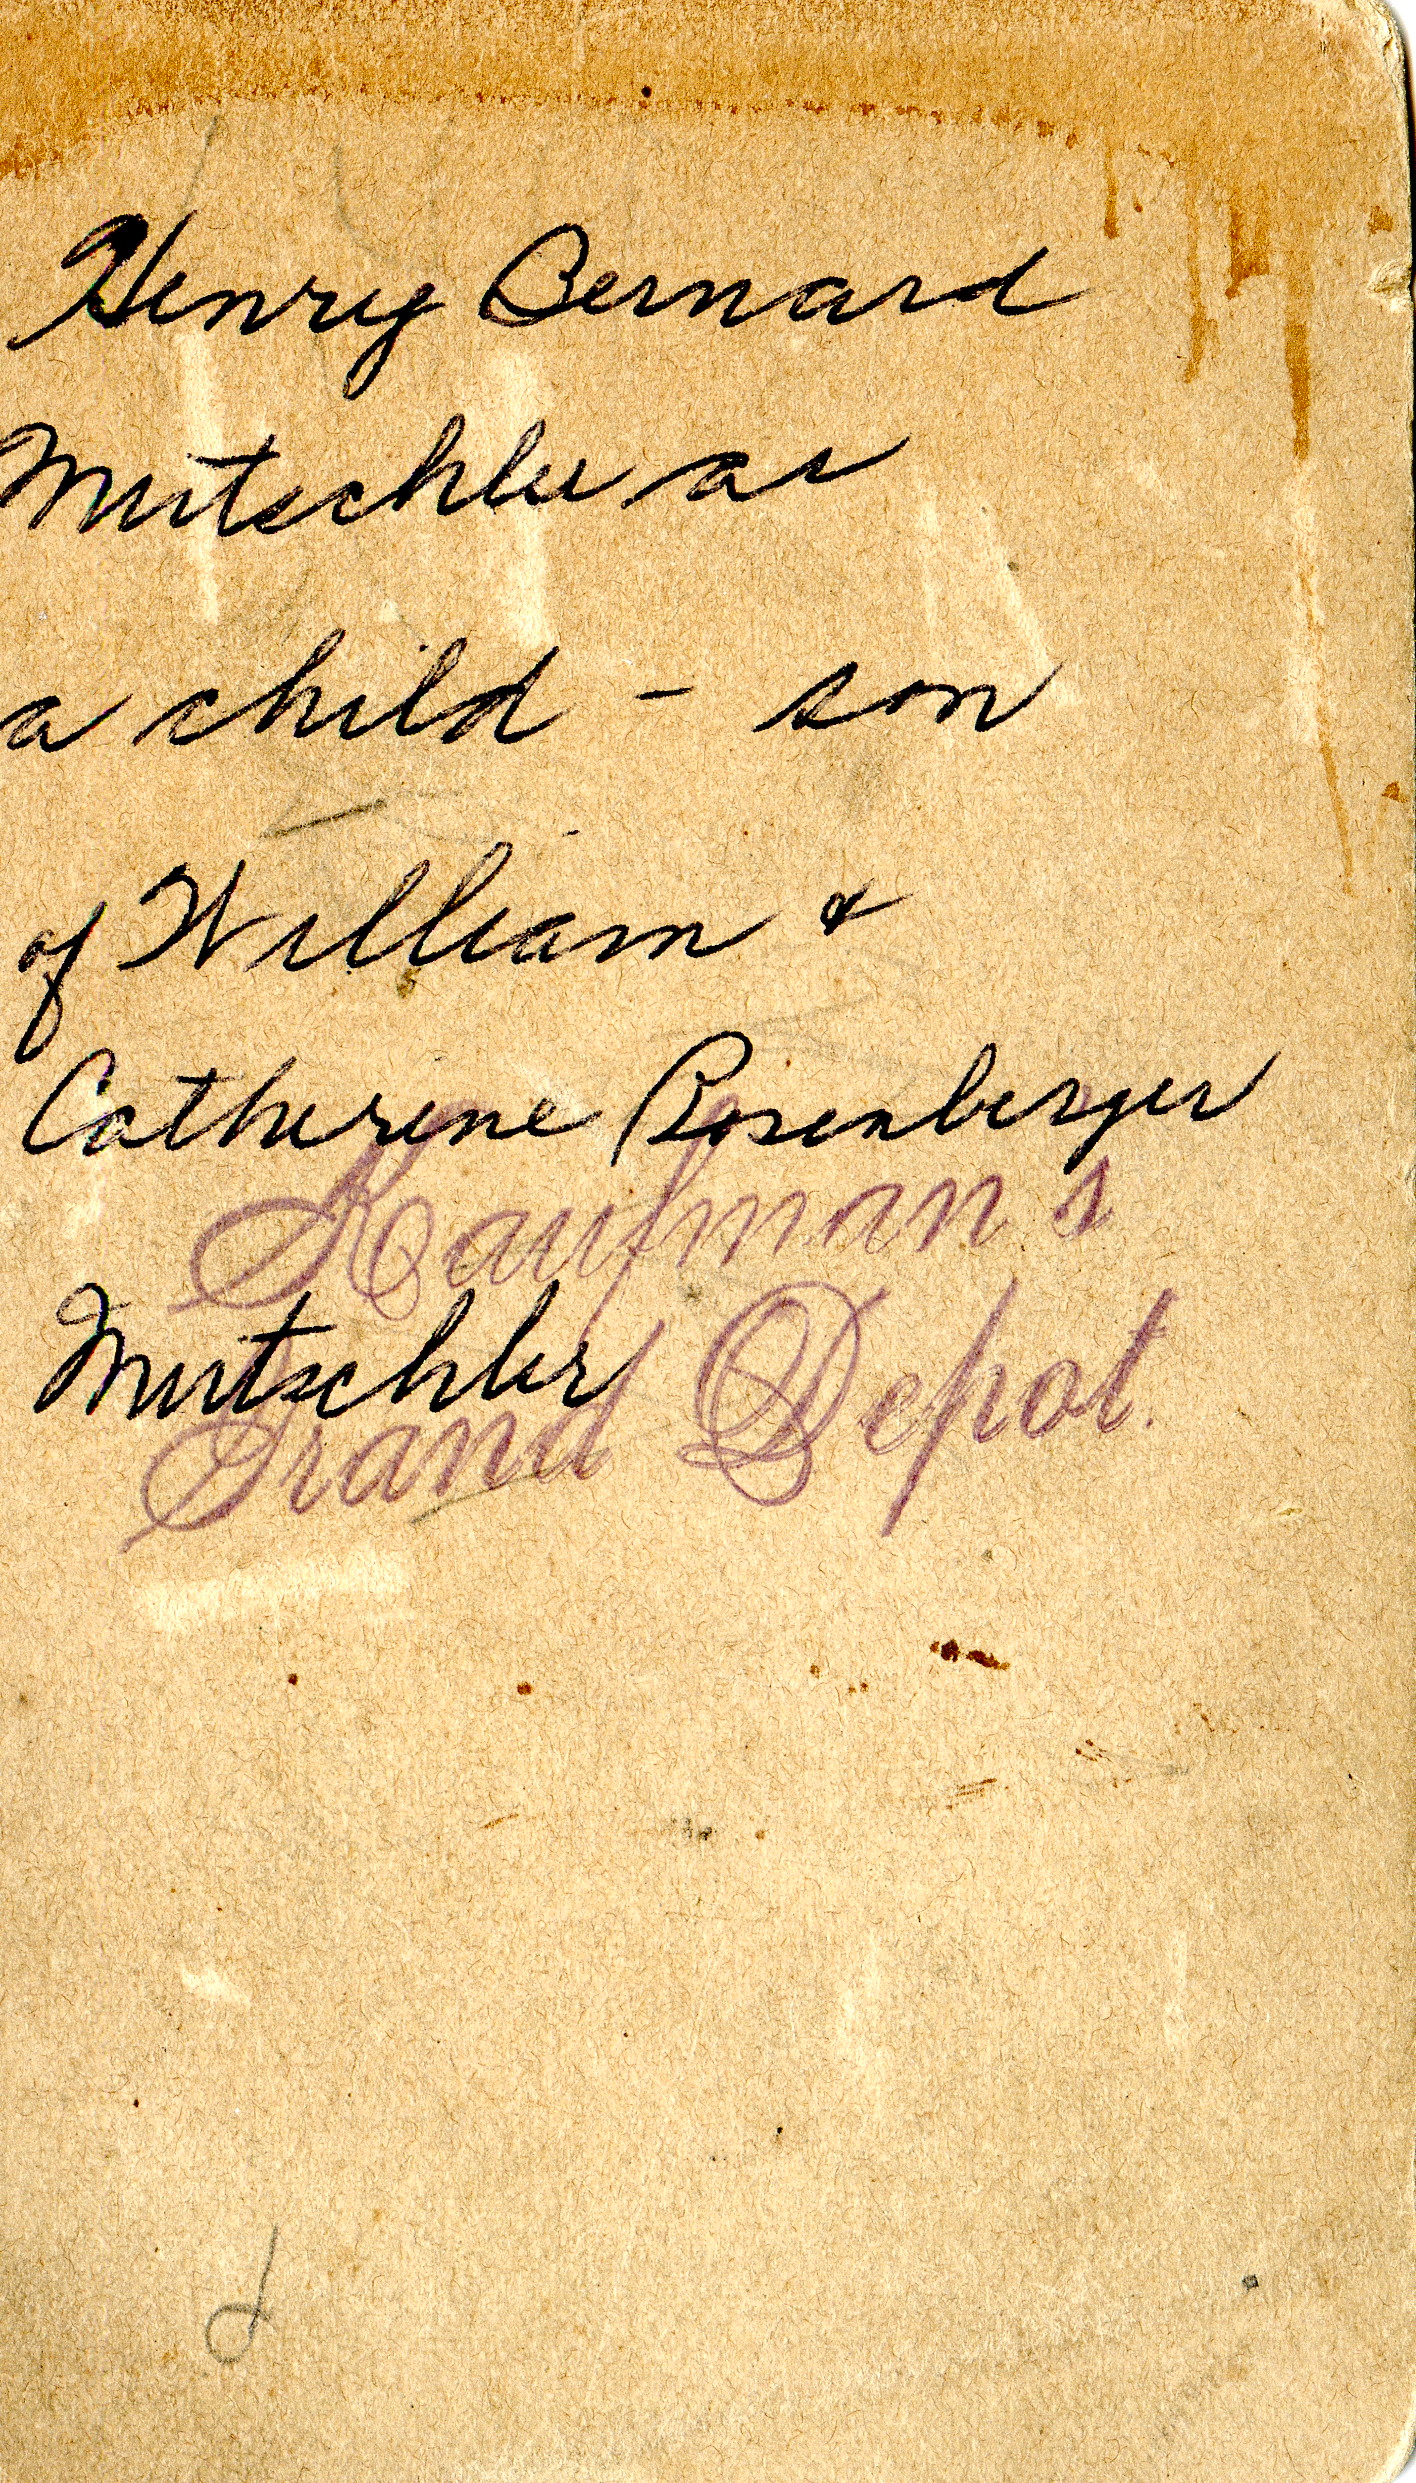 Henry Bernard
Mutschler as
a child - son
of William &
Catherine Rosenberger
Kaufman's
Mutschler
Grand Depot.
d